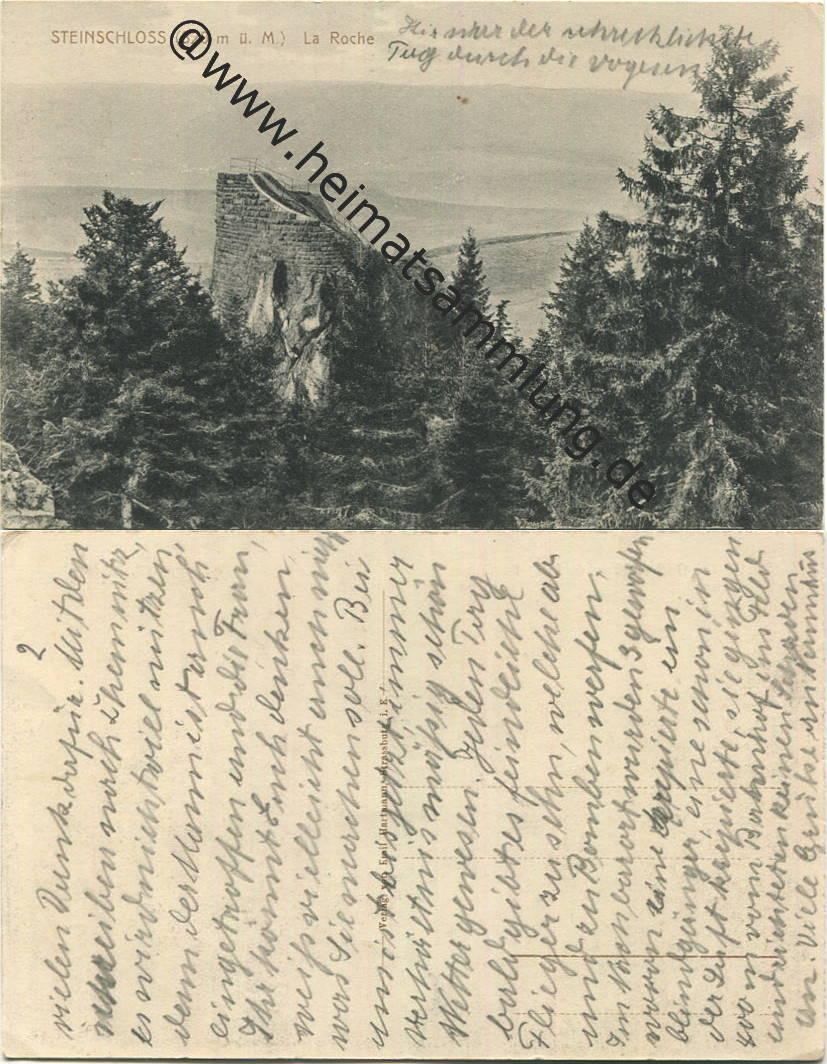 STEINSCHLOSS m ü. M.) La Roche
Hier war der schrecklichste
Tag durch die Vogesen
@www.heimatsammlung.de
2
vielen Dank dafür. Mit den
schreiben nach Chemnitz,
es wird nicht viel nützen,
denn der Mann ist auch
eingetroffen und die Frau,
Ihr könnt Euch denken,
weiß vielleicht auch nicht
was sie machen soll. Bei
uns ist bis jetzt immer
verhältnismäßig schön
Wetter gewesen. Jeden Tag
bald gibt es feindliche
Flieger zu sehn, welche ab
und zu Bomben werfen.
Im Nachbarort wurden 3 geworfen
waren eine krepierte ein
blindgänger, eine schon in
der Luft krepierte, sie gingen
400 m vom Bahnhof ins Feld
und richteten keinen Schaden
an. Viele Grüße an
Verlag von Emil Hartmann, Strassburg i. E.